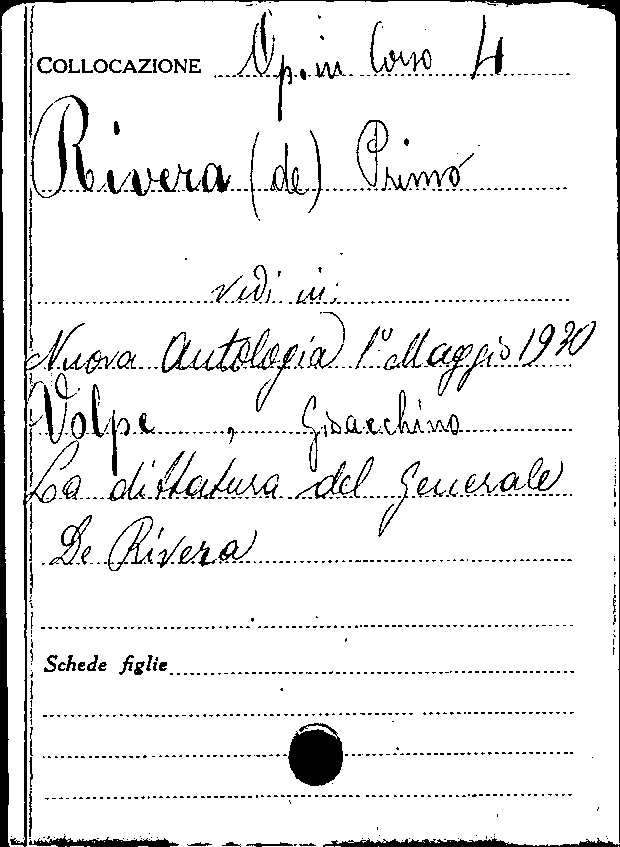 COLLOCAZIONE Op. in Corso 4
Rivera (de) Primo
vedi in:
Nuova Antologia 1° Maggio 1930
Volpe, Gioacchino
La dittatura del Generale
De Rivera
Schede figlie